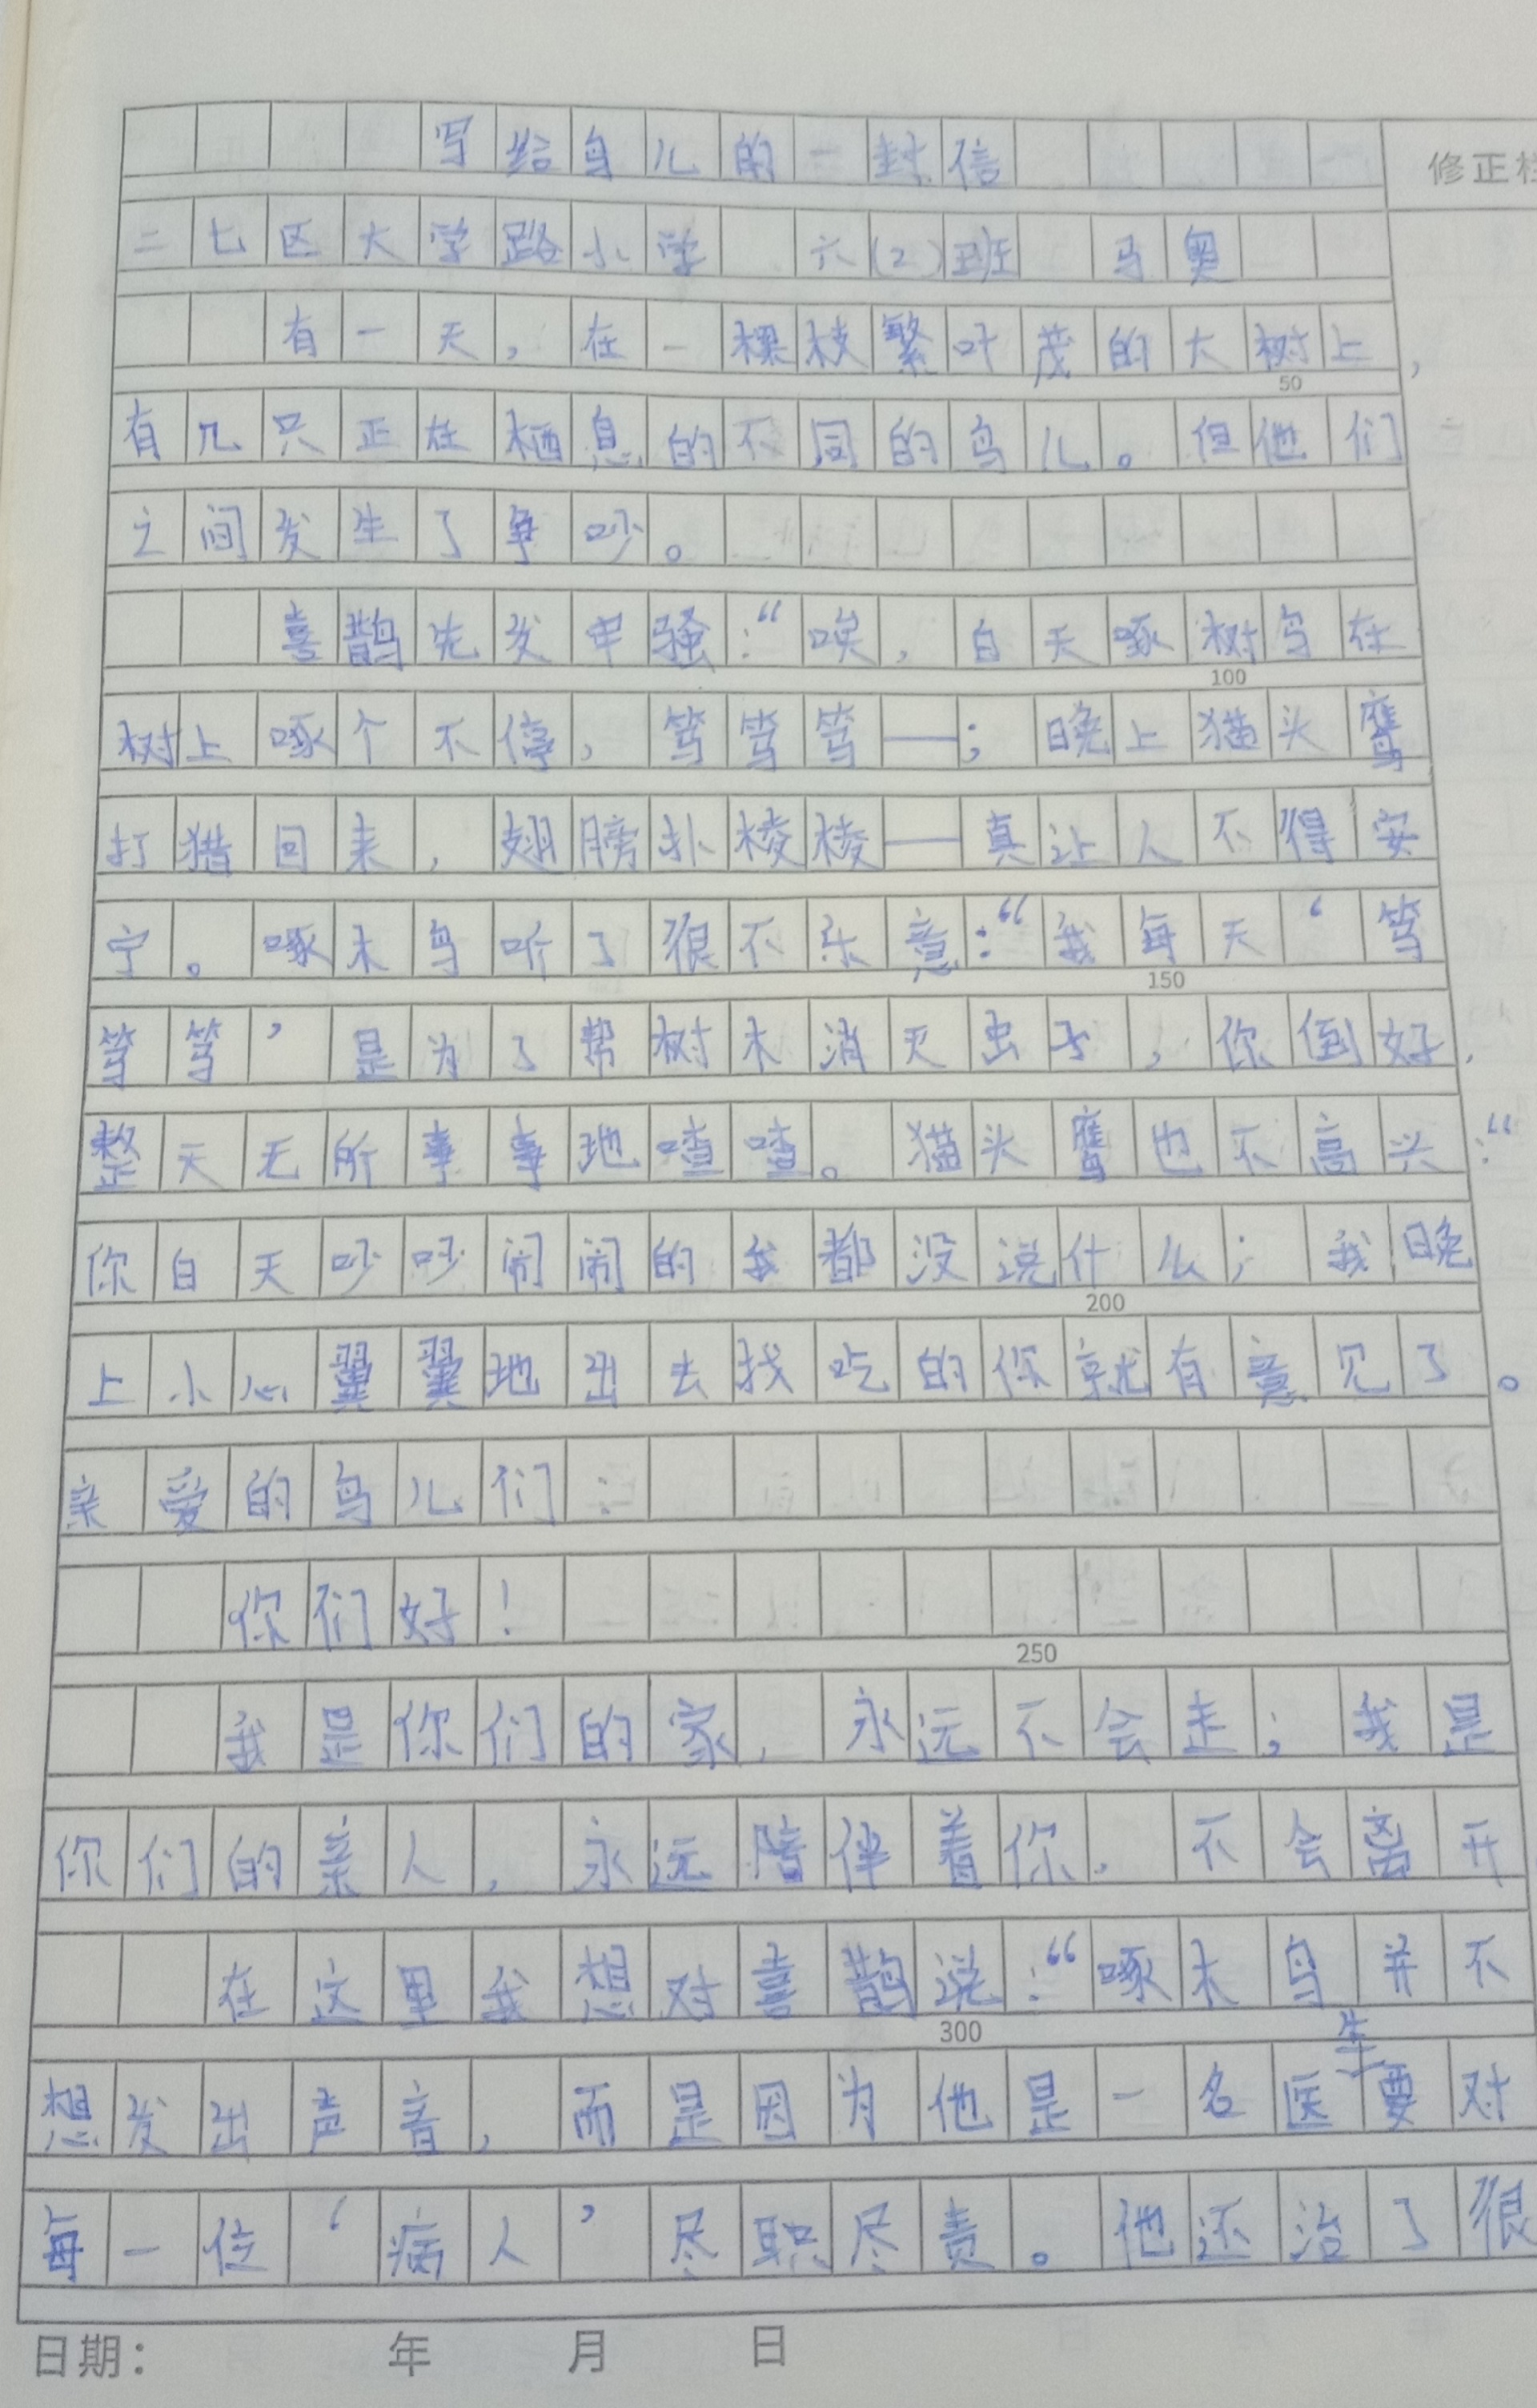 写给鸟儿的一封信
修正
二七区大学路小学 六(2)班 马奥
有一天，在一棵枝繁叶茂的大树上，
50
有几只正在栖息的不同的鸟儿。但他们
之间发生了争吵。
喜鹊先发牢骚：“唉，白天啄树鸟在
100
树上啄个不停，笃笃笃——；晚上猫头鹰
打猎回来，翅膀扑棱棱——真让人不得安
宁。啄木鸟听了很不乐意：“我每天‘笃
150
笃笃’是为了帮树木消灭虫子，你倒好，
整天无所事事地喳喳。猫头鹰也不高兴：“
你白天吵吵闹闹的我都没说什么；我晚
200
上小心翼翼地出去找吃的你就有意见了。
亲爱的鸟儿们：
你们好！
250
我是你们的家，永远不会走；我是
你们的亲人，永远陪伴着你，不会离开
在这里我想对喜鹊说：“啄木鸟并不
300
想发出声音，而是因为他是一名医生要对
每一位‘病人’尽职尽责。他还治了很
日期： 年 月 日